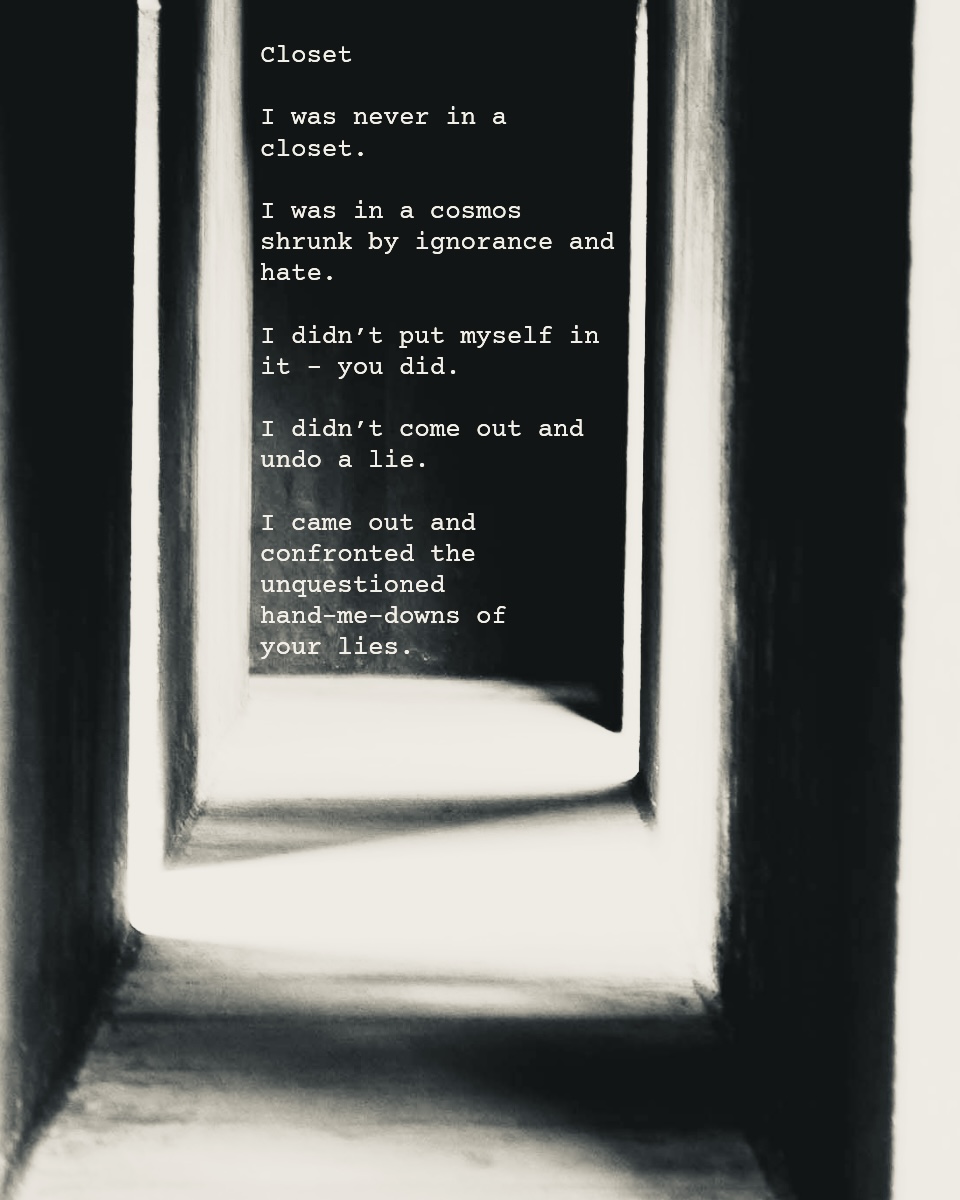 Closet
I was never in a
closet.
I was in a cosmos
shrunk by ignorance and
hate.
I didn’t put myself in
it – you did.
I didn’t come out and
undo a lie.
I came out and
confronted the
unquestioned
hand-me-downs of
your lies.